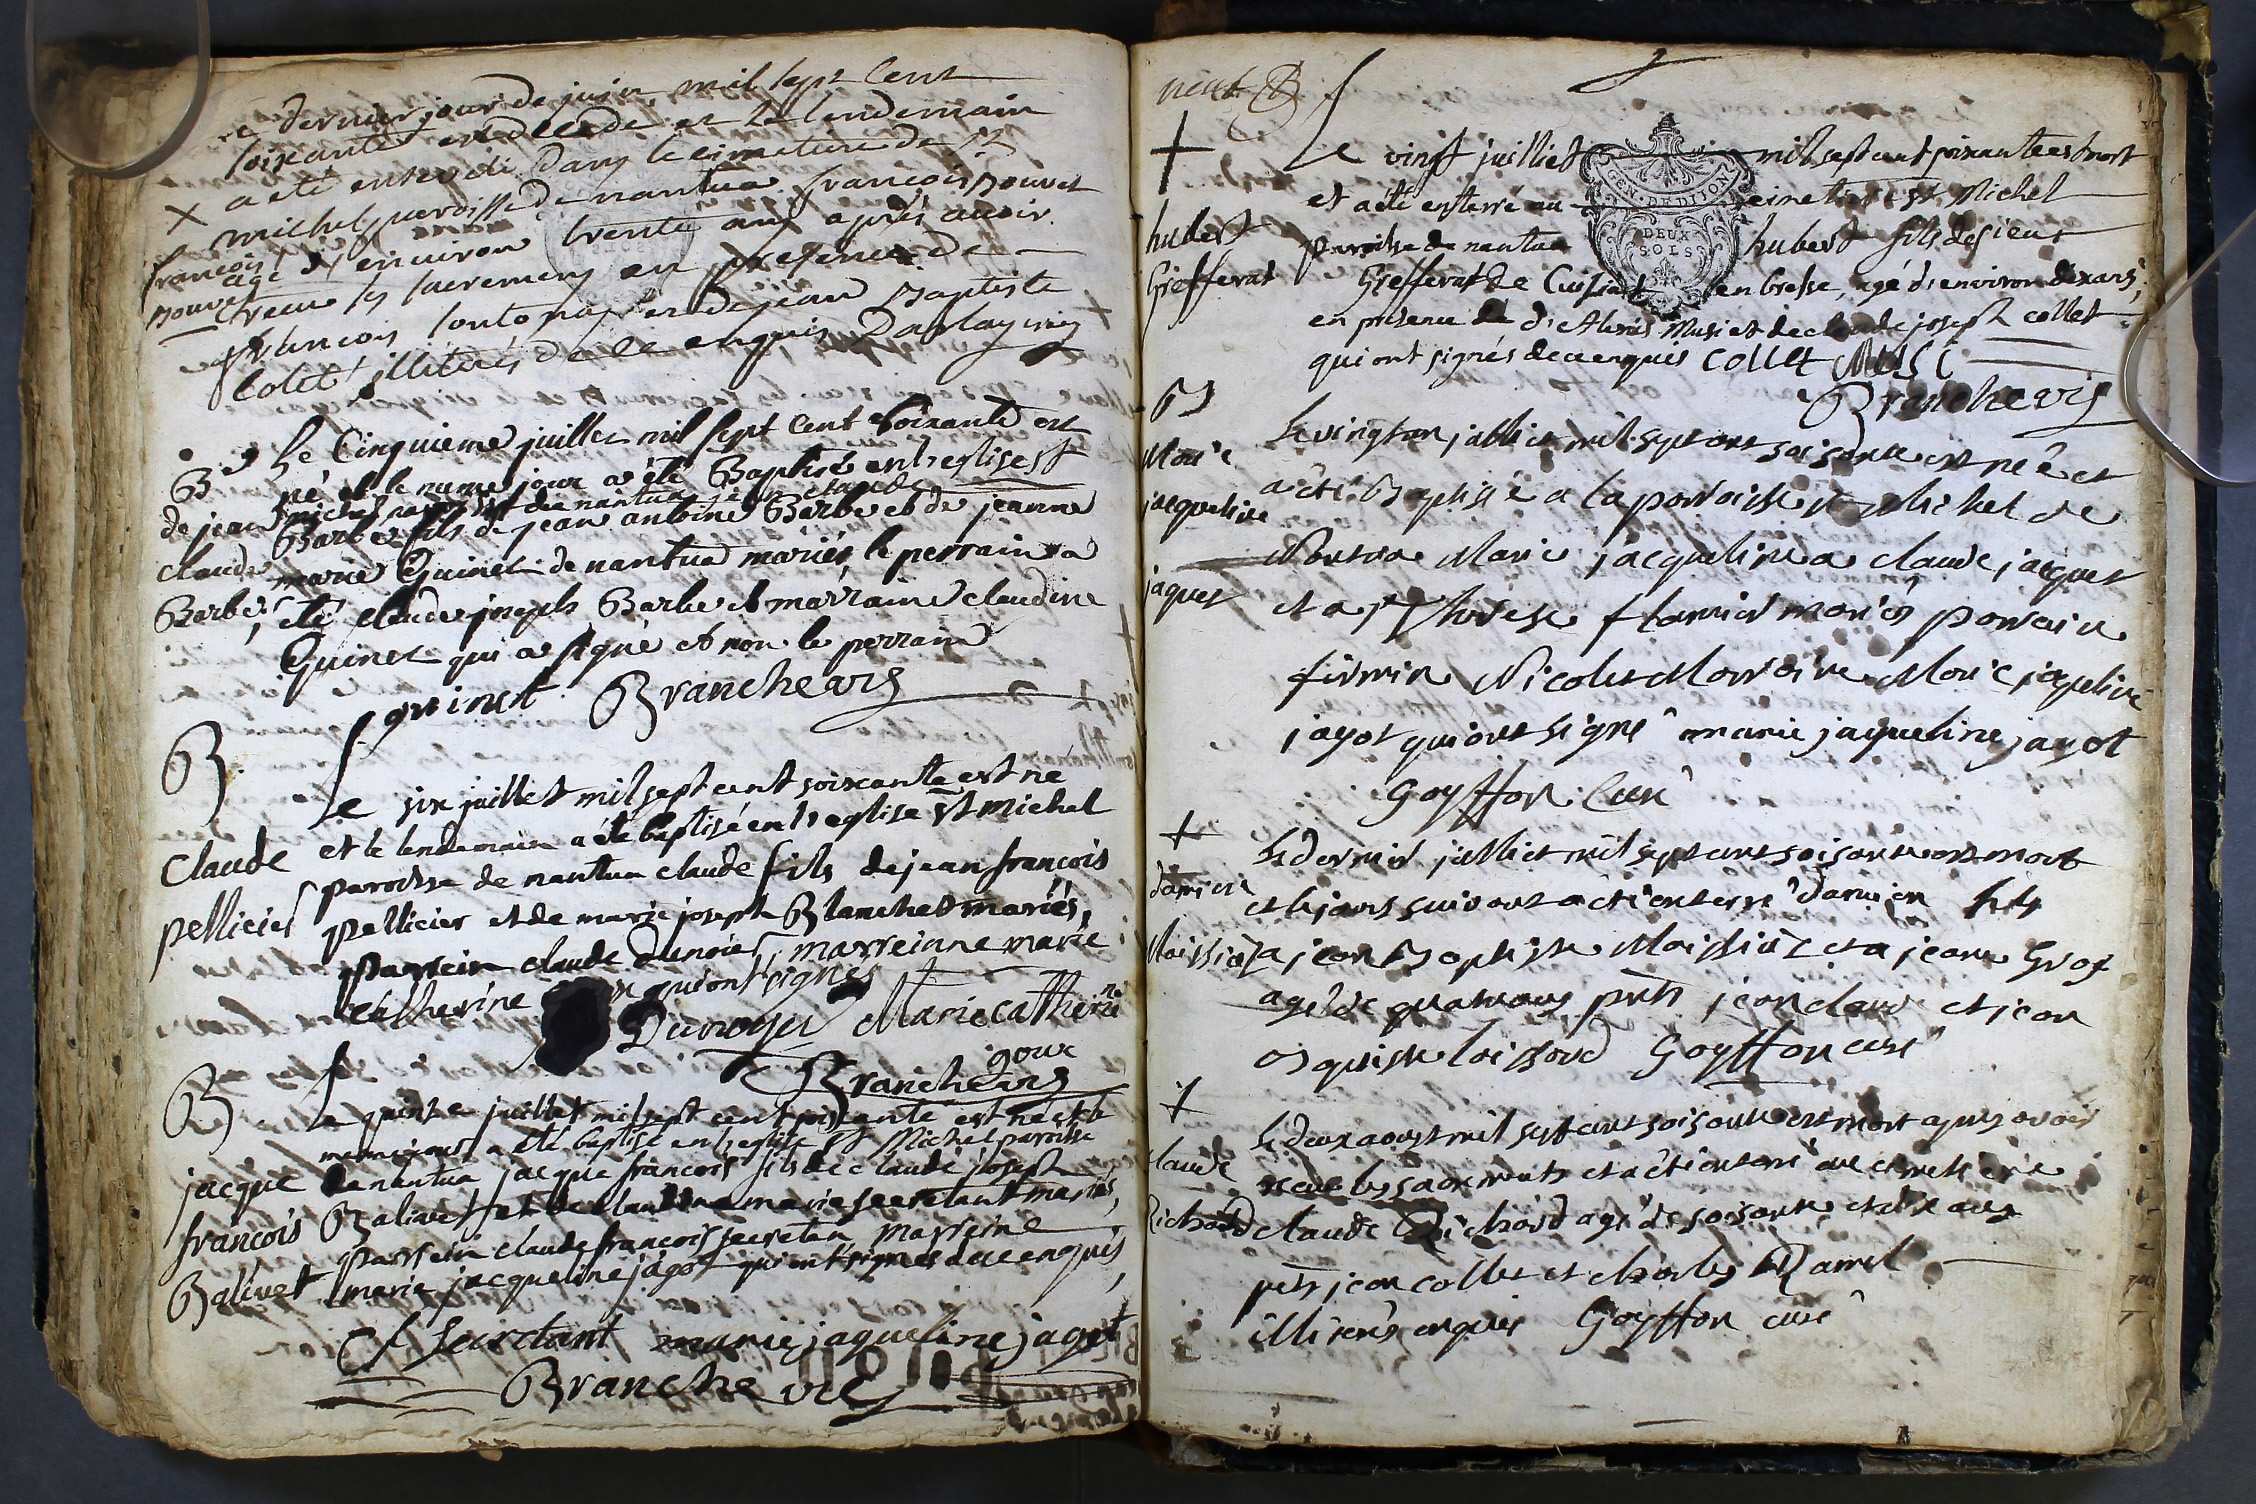 Le dernier jour de juin mil sept cent
soixante est decedé et le lendemain
x a eté enseveli dans le cimetiere de st
michel paroisse de nantua françois
françois agé d'environ trente ans après avoir
recu les sacremens en presence de
françois et de jean Baptiste
Colet illiterés de ce enquis
Le Cinquieme juillet mil sept cent soixante est
B né et le meme jour a été Baptisé en l'eglise st
michel paroisse de nantua jean claude
de jean Barbe fils de jean antoine Barbe et de jeanne
claude marie Guinet de nantua mariés, le perrain a
Barbe, été claude joseph Barbe et marraine claudine
Guinet qui a signé et non le perrain
guinet Branche vic
B Le six juillet mil sept cent soixante est né
et le lendemain a été baptisé en l'eglise st michel
Claude paroisse de nantua claude fils de jean françois
pellicier pellicier et de marie joseph Blanchet mariés,
parrein claude dunoier, marreinne marie
catherine qui ont signés
Dunoyer Marie catherine
goux
Branche vic
B Le quinze juillet mil sept cent soixante est né et le
meme jour a été baptisé en l'eglise st Michel paroisse
jacque de nantua jacque françois fils de claude joseph
françois Balivet et de claudine marie secretant mariés,
parrein claude françois secretan marreine
Balivet marie jacqueline jagot qui ont signés de ce enquis,
Cf Secretant marie jaqueline jagot
Branche vic
neuf
GEN. DE DIJON
DEUX
SOLS
+ Le vingt juilliet mil sept cent soixante est mort
et a été enterré au cimetiere st Michel
hubert paroisse de nantua hubert fils de sieur
Grefferat Grefferat de Cuisiat en bresse, agé d'environ dix ans,
en présence de d. Alexis Musi et de claude joseph collet
qui ont signés de ce enquis Collet MUSI
Branche vic
B Le vingt un julliet mil sept cent soisante est née et
Marie a été Baptisée a la parroisse st Michel de
jacqueline Nantua Marie jacqueline a claude jaquet
jaquet et a Therese mariés parrain
firmin Nicolet Marraine Marie jaqueline
jagot qui ont signé marie jaqueline jagot
Goyffon Curé
+ Le dernier julliet mil sept cent soisante est mort
damien et le jours suivant a été enterré damien fils
Maissiat a jean Baptiste Maissiat et a jeane Grof
agé de quatre ans pnts jean claude et jean
Goyffon curé
+ Le deux aoust mil sept cent soisante est mort apres avoir
claude receu les sacrements et a été enterré au cimetiere
Richard claude Richard agé de soisante et dix ans
pnts jean collet et charles Ramel
illiterés enquis Goyffon curé